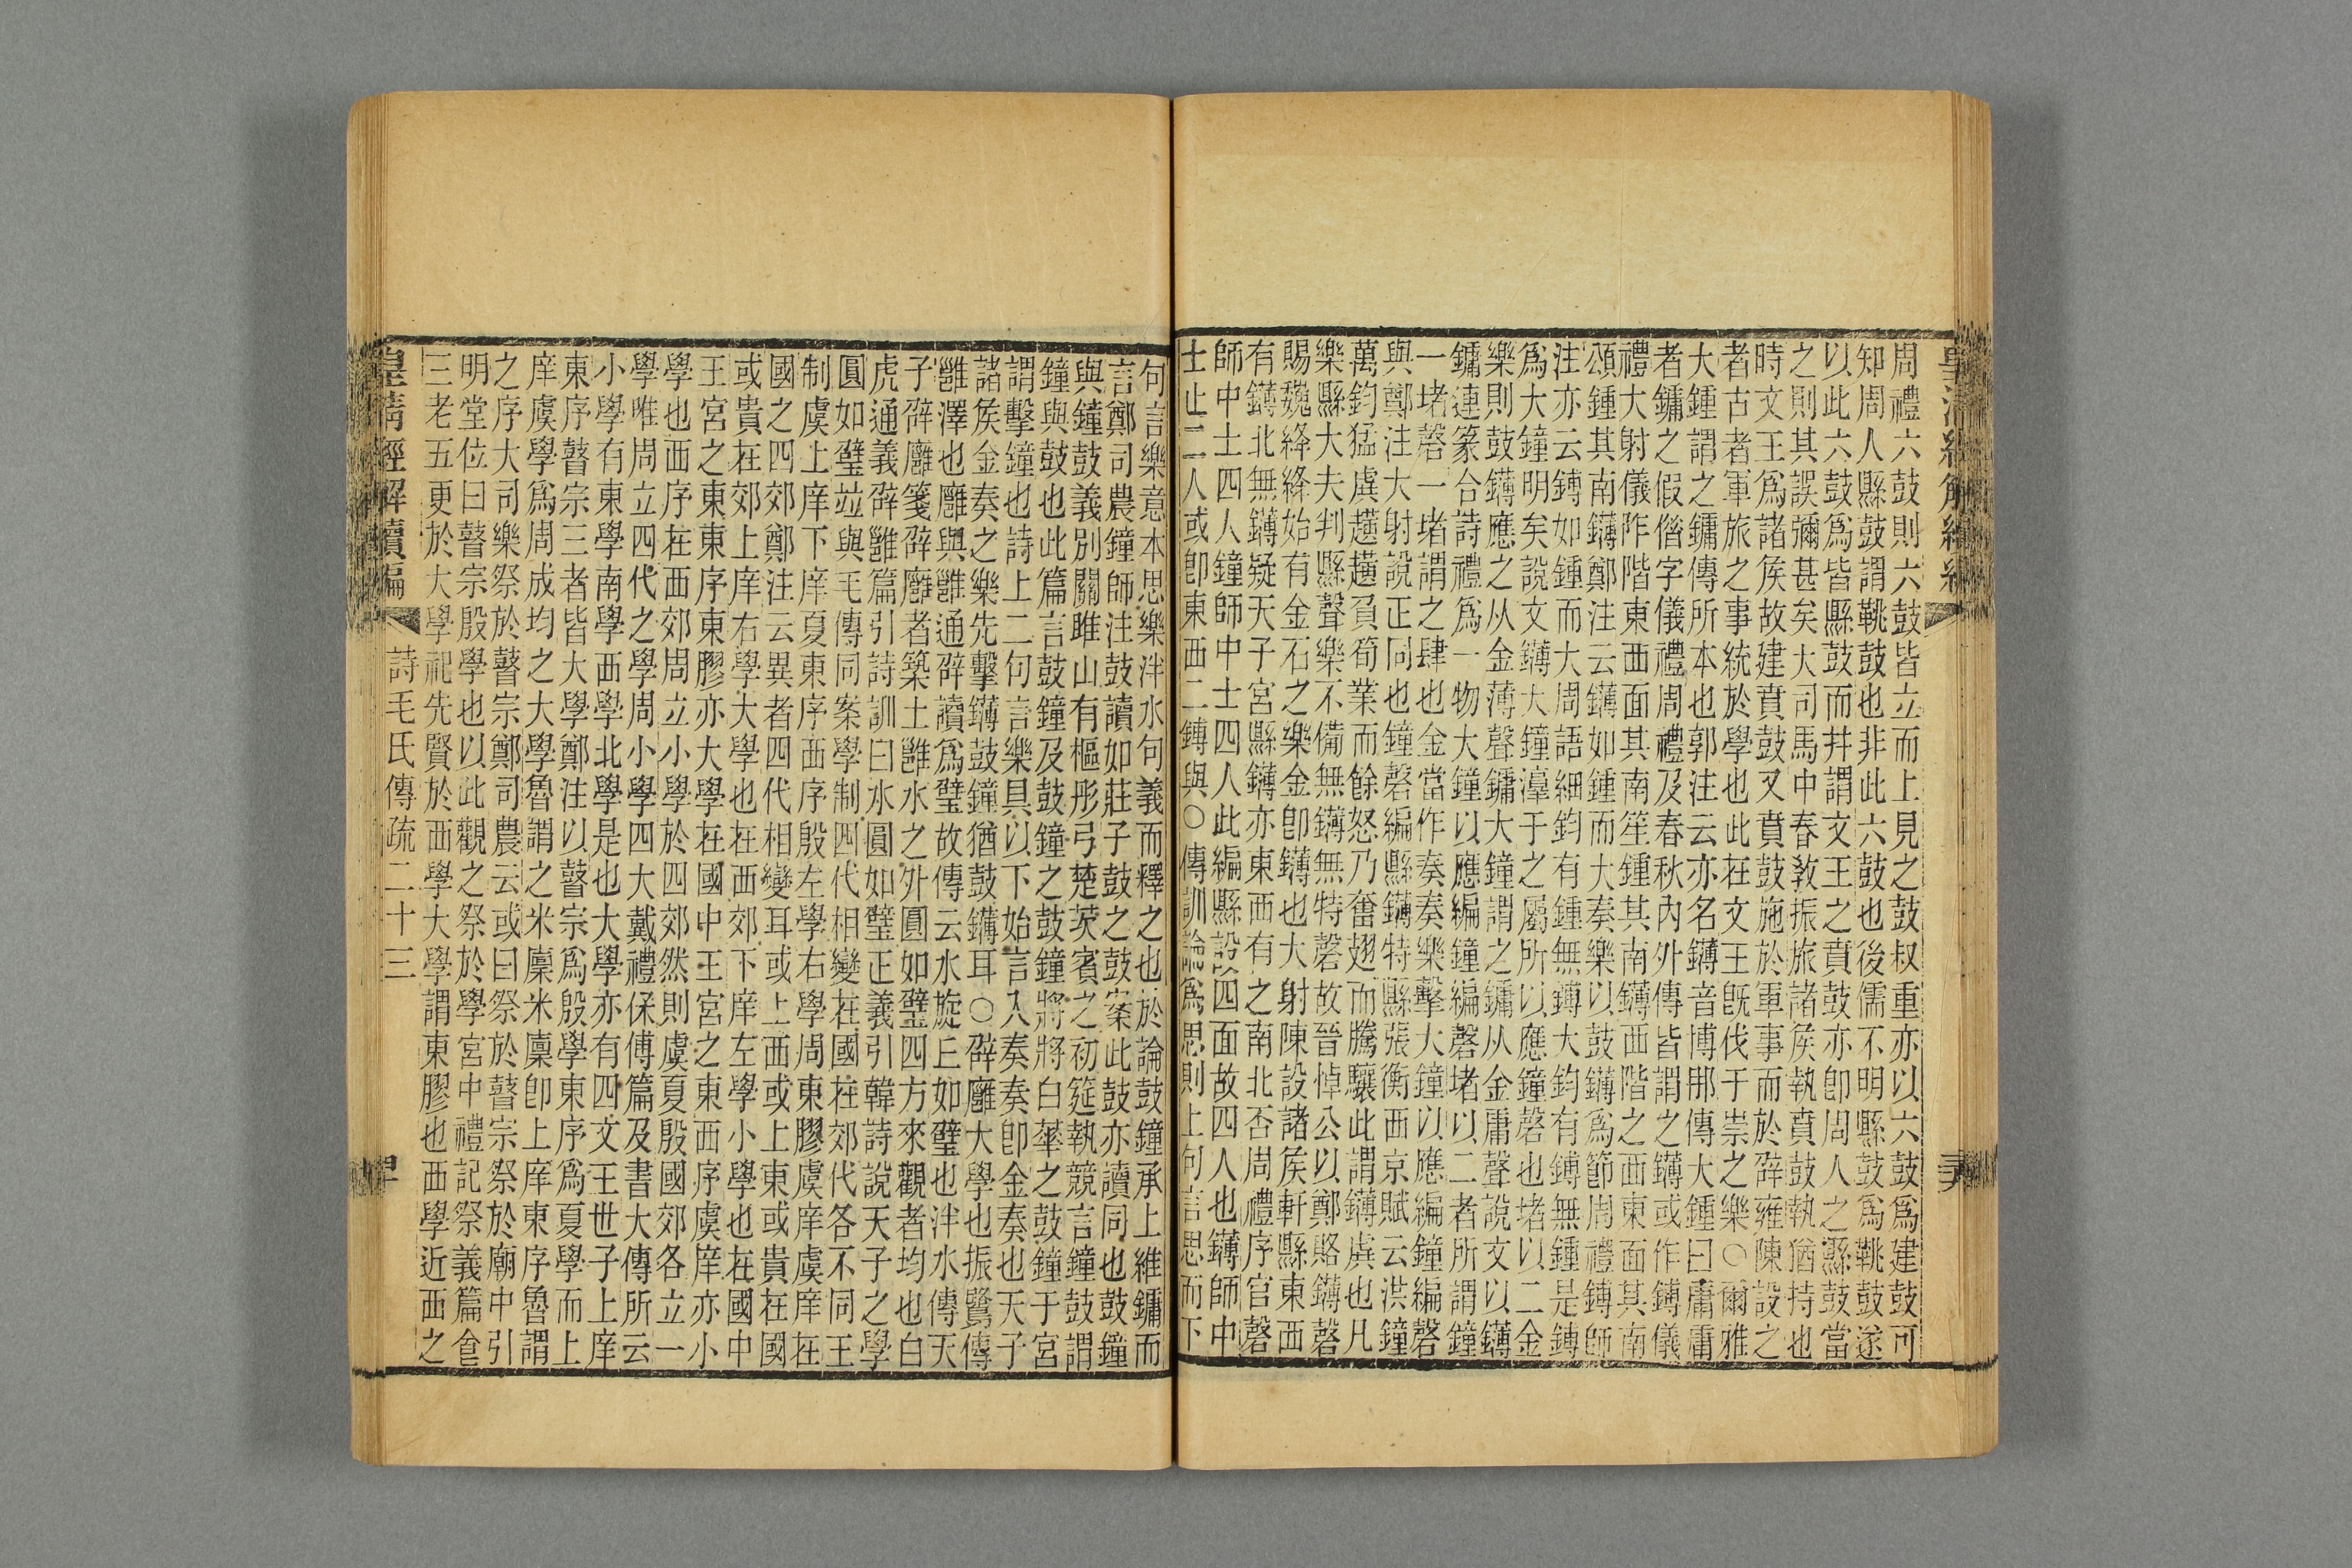 周禮六鼓則六鼓皆立而上見之鼓叔重亦以六鼓爲建鼓可
知周人縣鼓謂鼗鼓也非此六鼓也後儒不明縣鼓爲鼗鼓遂
以此六鼓爲皆縣鼓而幷謂文王之賁鼓亦卽周人之縣鼓當
之則其誤彌甚矣大司馬中春敎振旅諸矦執賁鼓執猶持也
時文王爲諸矦故建賁鼓又賁鼓施於軍事而於辟雍陳設之
者古者軍旅之事統於學也此在文王旣伐于崇之樂○爾雅
大鍾謂之鏞傳所本也郭注云亦名鑮音博邢傳大鍾曰庸庸
者鏞之假借字儀禮周禮及春秋內外傳皆謂之鑮或作鎛儀
禮大射儀阼階東西面其南笙鍾其南鑮西階之西東面其南
頌鍾其南鑮鄭注云鑮如鍾而大奏樂以鼓鑮爲節周禮鎛師
注亦云鎛如鍾而大周語細鈞有鍾無鎛大鈞有鎛無鍾是鎛
爲大鐘明矣說文鑮大鐘𣽎于之屬所以應鐘磬也堵以二金
樂則鼓鑮應之从金薄聲鏞大鐘謂之鏞从金庸聲說文以鑮
鏞連篆合詩禮爲一物大鐘以應編鐘編磬堵以二者所謂鐘
一堵磬一堵謂之肆也金當作奏奏樂擊大鐘以應編鐘編磬
與鄭注大射說正同也鐘磬編縣鑮特縣張衡西京賦云洪鐘
萬鈞猛虡趪趪負筍業而餘怒乃奮翅而騰驤此謂鑮虡也凡
樂縣大夫判縣聲樂不備無鑮無特磬故晉悼公以鄭賂鑮磬
賜魏絳絳始有金石之樂金卽鑮也大射陳設諸矦軒縣東西
有鑮北無鑮疑天子宮縣鑮亦東西有之南北否周禮序官磬
師中士四人鐘師中士四人此編縣設四面故四人也鑮師中
士止二人或卽東西二鎛與○傳訓論爲思則上句言思而下
句言樂意本思樂泮水句義而釋之也於論鼓鐘承上維鏞而
言鄭司農鐘師注鼓讀如莊子鼓之鼓案此鼓亦讀同也鼓鐘
與鐘鼓義別關雎山有樞彤弓楚茨賓之初筵執競言鐘鼓謂
鐘與鼓也此篇言鼓鐘及鼓鐘之鼓鐘將將白華之鼓鐘于宮
謂擊鐘也詩上二句言樂具以下始言入奏奏卽金奏也天子
諸矦金奏之樂先擊鑮鼓鐘猶鼓鑮耳○辟廱大學也振鷺傳
雝澤也廱與雝通辟讀爲璧故傳云水旋丘如璧也泮水傳天
子辟廱箋辟廱者築土雝水之外圓如璧四方來觀者均也白
虎通義辟雝篇引詩訓曰水圓如璧正義引韓詩說天子之學
圓如璧竝與毛傳同案學制四代相變在國在郊代各不同王
制虞上庠下庠夏東序西序殷左學右學周東膠虞庠虞庠在
國之四郊鄭注云異者四代相變耳或上西或上東或貴在國
或貴在郊上庠右學大學也在西郊下庠左學小學也在國中
王宮之東東序東膠亦大學在國中王宮之東西序虞庠亦小
學也西序在西郊周立小學於四郊然則虞夏殷國郊各立一
學唯周立四代之學周小學四大戴禮保傅篇及書大傳所云
小學有東學南學西學北學是也大學亦有四文王世子上庠
東序瞽宗三者皆大學鄭注以瞽宗爲殷學東序爲夏學而上
庠虞學爲周成均之大學魯謂之米廩米廩卽上庠東序魯謂
之序大司樂祭於瞽宗鄭司農云或曰祭於瞽宗祭於廟中引
明堂位曰瞽宗殷學也以此觀之祭於學宮中禮記祭義篇食
三老五更於大學祀先賢於西學大學謂東膠也西學近西之
皇淸經解續編 詩毛氏傳疏二十三